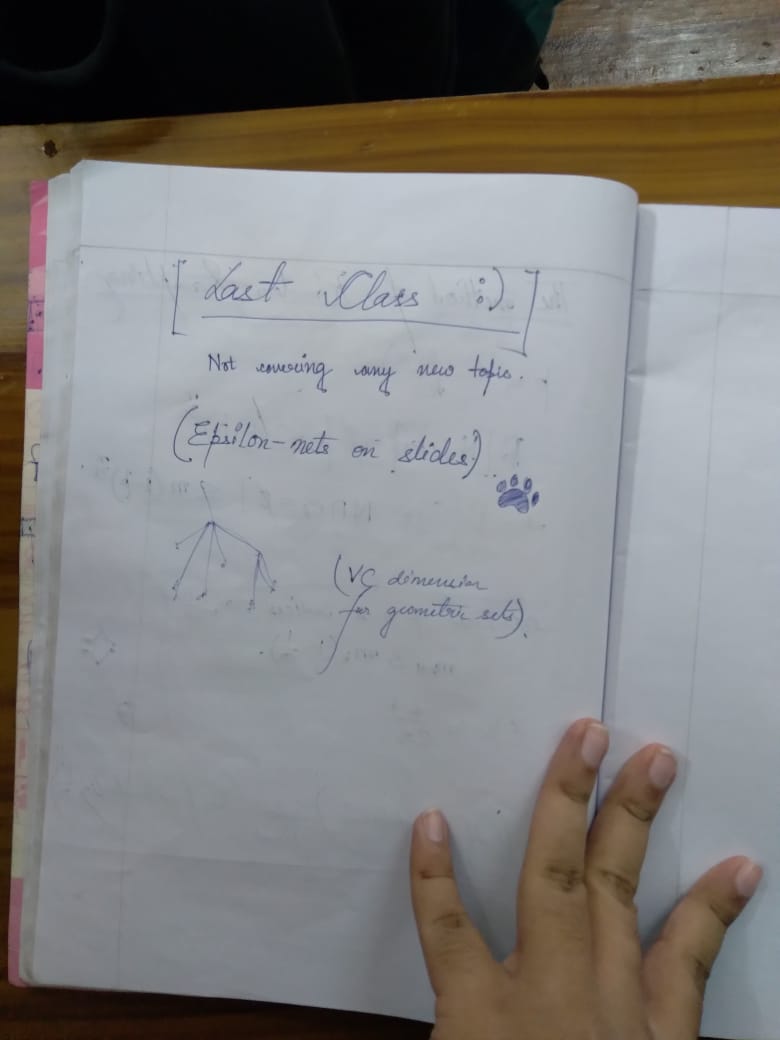 [Last Class :)]
Not covering any new topic.
(Epsilon-nets on slides)
(VC dimension
for geometric sets).